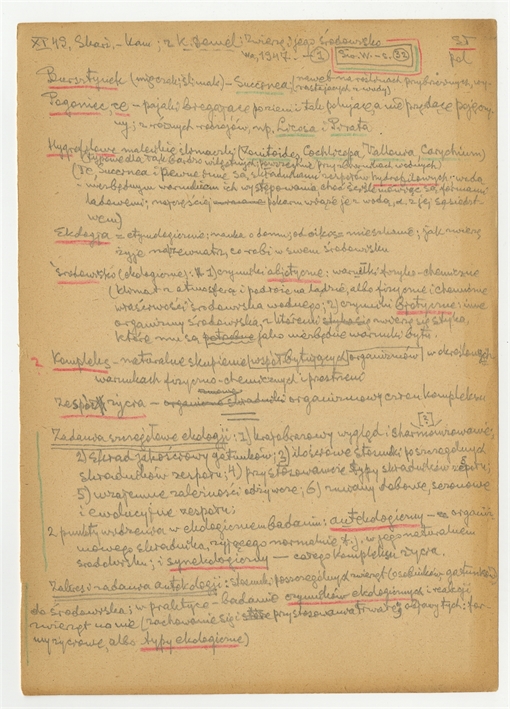 XI 49. Skarż.-Kam; z K. Demel: Zwierzę i jego środowisko
W. 1947. — (1) Św. W - s. 32 pol
Bursztynek (mięczak; ślimak) - Succinea (nawet na roślinach przybrzeżnych, wyrastających z wody)
Pogońce, - pająki biegające po ziemi i tak polujące a nie przędące pajęczyny; z różnych rodzajów, np. Licosa i Pirata.
Hygrofilowe maleńkie ślimaczki (Zonitoides, Cochlicopa, Vallonia, Carychium)
(typowe dla tak bardzo wilgotnych powierzchni przy zbiornikach wodnych)
(Te, Succinea i pewne inne są składnikami zespołów hydrofilowych - woda
niezbędnym warunkiem ich występowania, choć ściśle mówiąc są formami
lądowemi; najczęściej pokarm wiąże je z wodą, a z jej sąsiedztwem)
Ekologja = etymologicznie: nauka o domu, od oikos = mieszkanie; jak zwierzę
żyje na zewnątrz, co robi w swem środowisku
Środowisko (ekologiczne): 1) czynniki abjotyczne: warunki fizyko-chemiczne
(klimat n. atmosfera i podłoże na lądzie, albo fizyczne i chemiczne
właściwości środowiska wodnego; 2) czynniki biotyczne: inne
organizmy środowiska, z któremi zwierzę się styka,
które mu są jako niezbędne warunki bytu.
2 Kompleks - naturalne skupienie współbytujących organizmów w określonych
warunkach fizyczno-chemicznych i przestrzeni
Zespół życia - organizmowy człon kompleksu
[3]
Zadania szczegółowe ekologji: 1) krajobrazowy wygląd i sharmonizowanie;
2) skład jakościowy gatunków; 3) ilościowe stosunki poszczególnych
składników zespołu; 4) przystosowawcze typy składników zespołu;
5) wzajemne zależności odżywcze; 6) zmiany dobowe, sezonowe
i ewolucyjne zespołu;
2 punkty widzenia w ekologicznem badaniu: autekologiczny - organizmowego
składnika, żyjącego normalnie, t. j. w jego naturalnem
środowisku; i synekologiczny — całego kompleksu życia.
Zakres i zadania autekologji: stosunki poszczególnych zwierząt (osobników, gatunków)
do środowiska; w praktyce - badanie czynników ekologicznych i reakcji
zwierząt na nie (zachowanie się i przystosowania trwałe, odbyte tych: formy
życiowe, albo typy ekologiczne)